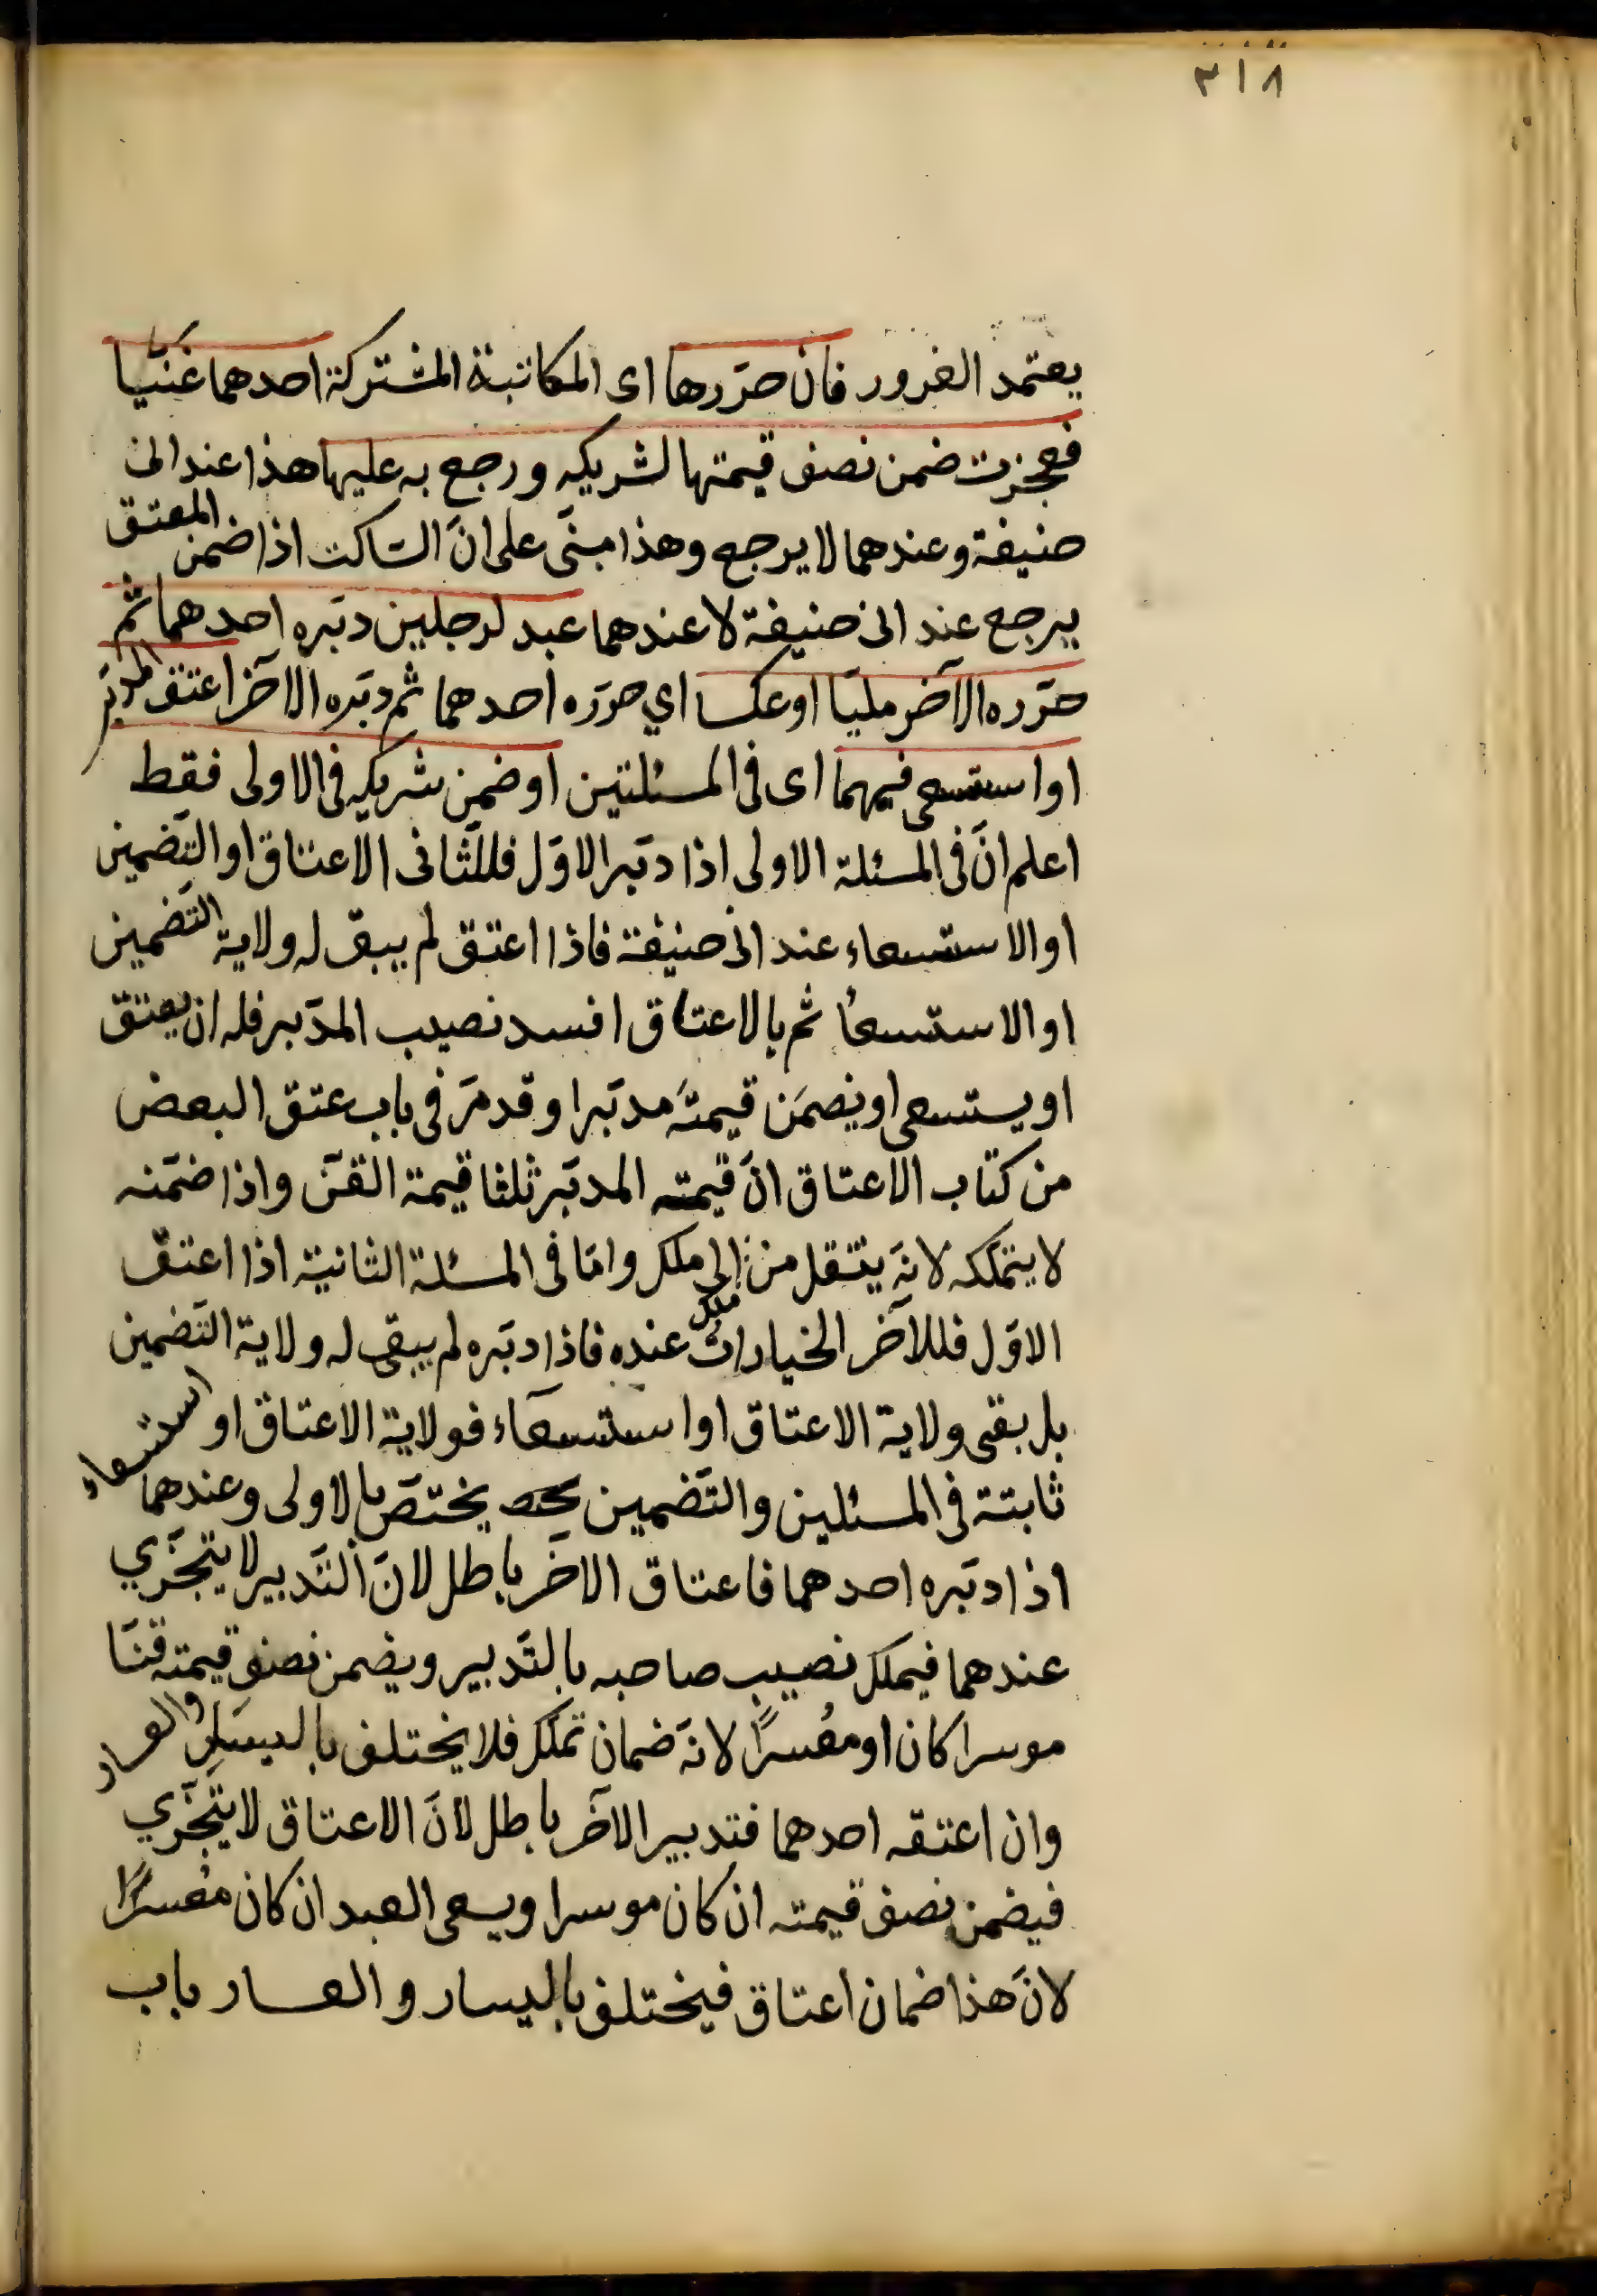 ٣١٨
يعتمد الغرور فان حرّرها اى المكاتبة المشتركة احدهما غنيّا
فعجزت ضمن نصف قيمتها لشريكه ورجع به عليها هذا عند ابى
حنيفة وعندهما لا يرجع وهذا مبنىّ على انّ الساكت اذا ضمن المعتق
يرجع عند ابى حنيفة لا عندهما عبد لرجلين دبّره احدهما ثم
حرّره الآخر مليّا او عكسا اي حرّره احدهما ثم دبّره الآخر اعتق المدبّر
او استسعى فيهما اى فى المسئلتين او ضمن شريكه فى الاولى فقط
اعلم انّ فى المسئلة الاولى اذا دبّر الاوّل فللثّانى الاعتاق او التّضمين
او الاستسعاء عند ابى حنيفة فاذا اعتق لم يبق له ولاية التّضمين
او الاستسعأ ثم بالاعتاق افسد نصيب المدّبر فله ان يعتق
او يستسعى او يضمّن قيمتَه مدبّرا وقد مرّ فى باب عتق البعض
من كتاب الاعتاق انّ قيمته المدبّر ثلثا قيمة القنّ واذا ضمّنه
لا يتملّكه لانّه ينتقل من ملك الى ملك وامّا فى المسئلة الثانية اذا اعتق
الاوّل فللآخر الخياراتُ عنده فاذا دبّره لم يبقى له ولاية التّضمين
بل بقى ولاية الاعتاق او استسعآء فولاية الاعتاق او استسعاء
ثابتة فى المسئلين والتّضمين يختصّ بالاولى وعندهما
اذا دبّره احدهما فاعتاق الآخر باطل لانّ التّدبير لا يتجزّي
عندهما فيملك نصيب صاحبه بالتّدبير ويضمن نصف قيمته قنّا
موسرا كان او معُسرًا لانّه ضمان تملّك فلا يختلف باليسار والعسار
وان اعتقه احدهما فتدبير الآخر باطل لانّ الاعتاق لا يتجزّي
فيضمن نصف قيمته ان كان موسرا ويسعى العبد ان كان معُسرًا
لانّ هذا ضمان اعتاق فيختلف باليسار والعسار باب